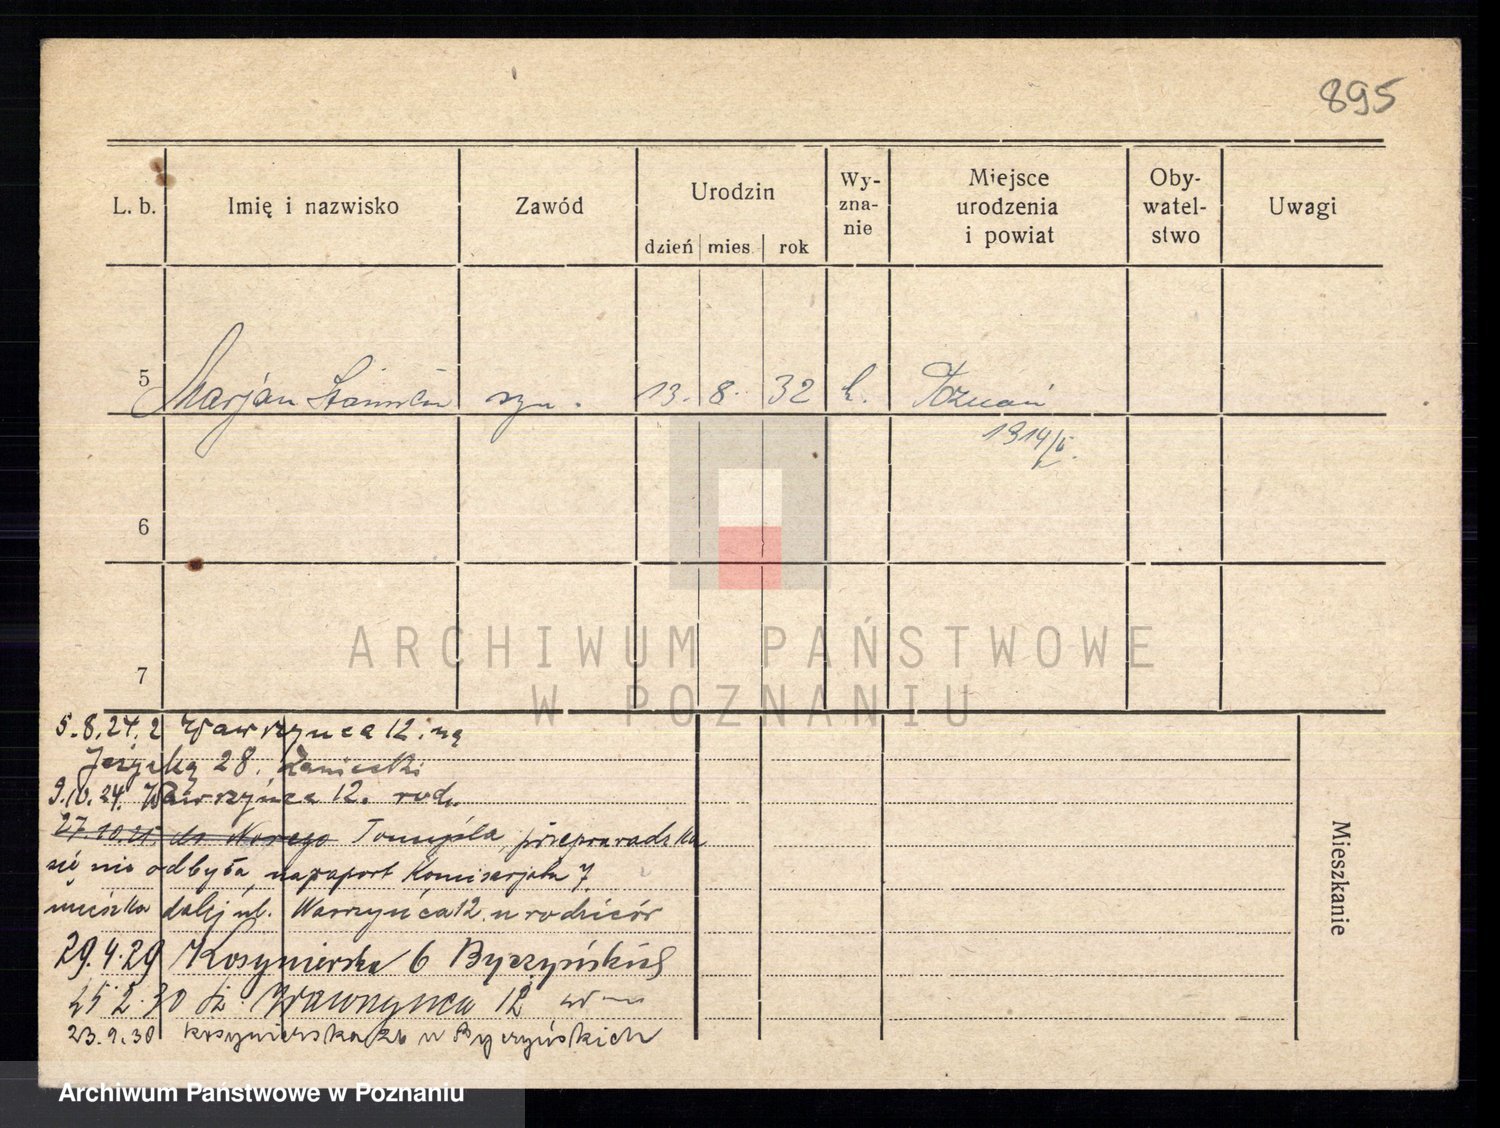 895
L. b.
Imię i nazwisko
Zawód
Urodzin
dzień mies. rok
Wy-
zna-
nie
Miejsce
urodzenia
i powiat
Oby-
watel-
stwo
Uwagi
5 Marjan syn. 13. 8. 32 k. Poznań
6
7
ARCHIWUM PAŃSTWOWE
W POZNANIU
5.8.24. z Wawrzyńca 12. na
Jeżycką 28.
9.10.24. Wawrzyńca 12. rodz.
27.10.25. do Nowego Tomyśla, przeprowadzka
się nie odbyła, raport Komisarjatu 7
mieszka dalej ul. Wawrzyńca 12. u rodziców
29.4.29 Kosynierska 6 Byczyńskich
25.2.30 Wawrzyńca 12
23.9.30 Kosynierska u Byczyńskich
Mieszkanie
Archiwum Państwowe w Poznaniu